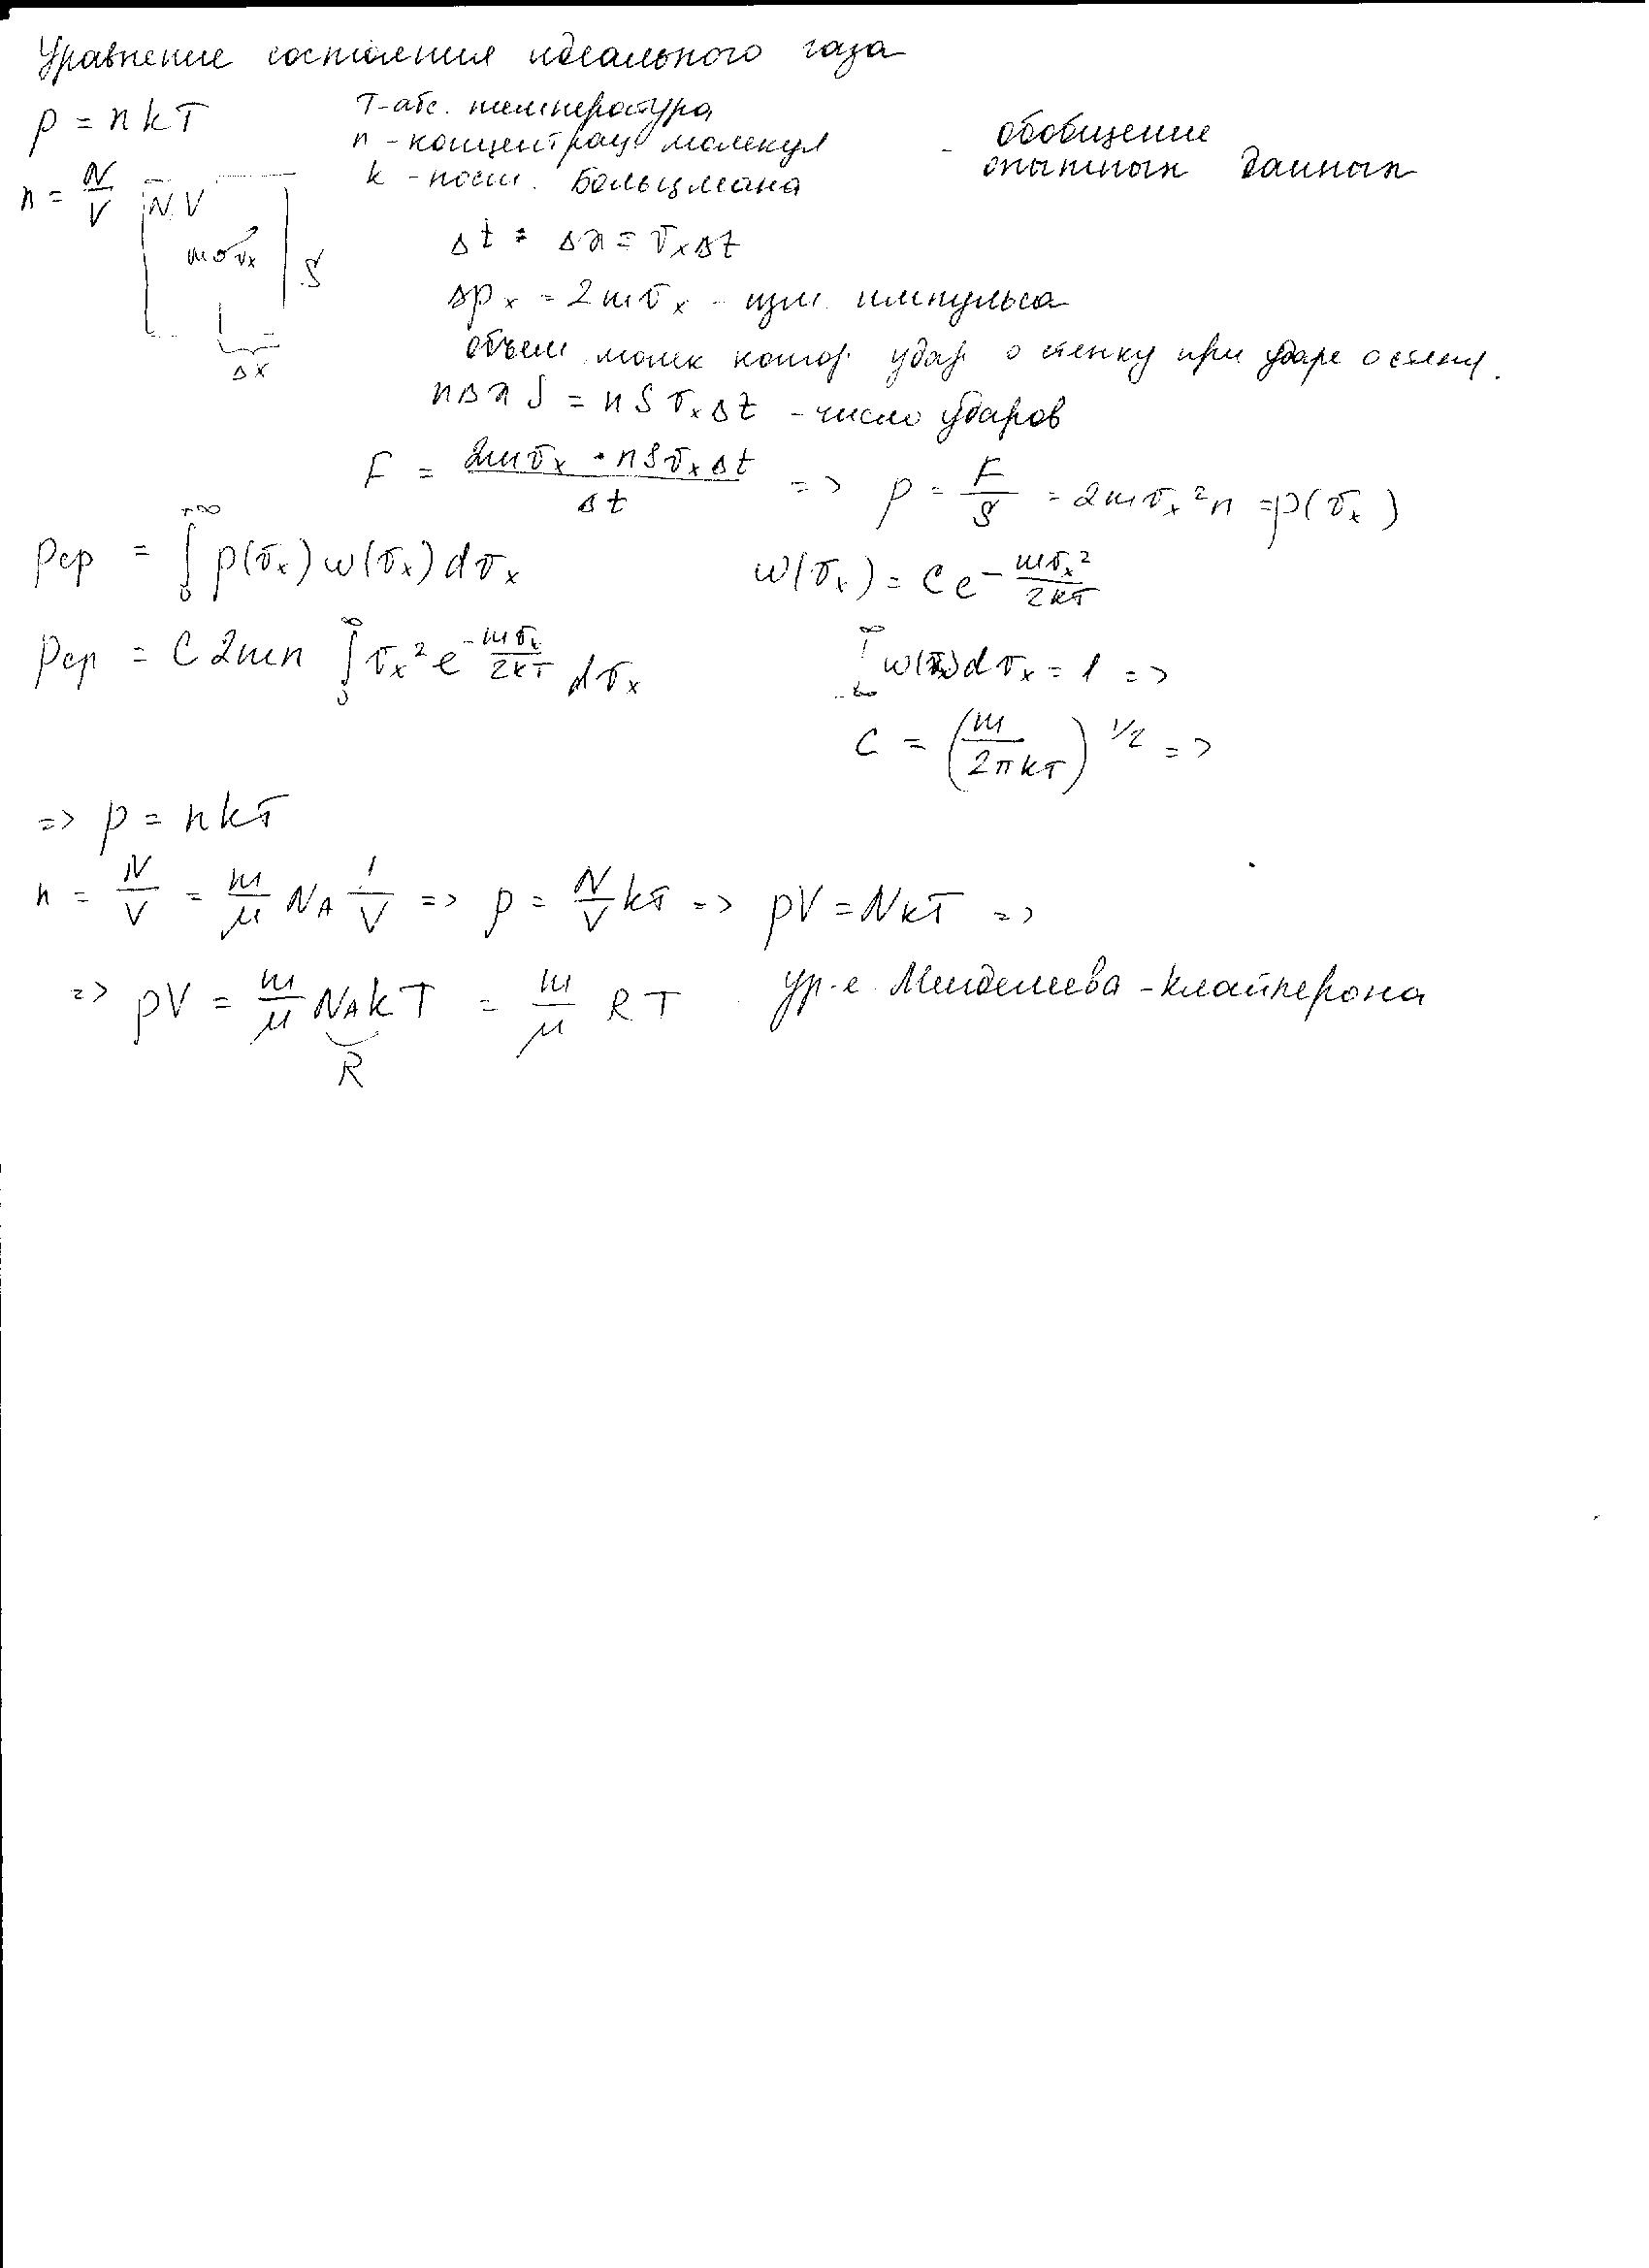 Уравнение состояния идеального газа
p = nkT
T - абс. температура
n - концентрац. молекул
k - пост. Больцмана
- обобщение
опытных данных
n = N/V
N, V
m v_x
S
Δx
Δt : Δx = v_x Δt
Δp_x = 2mv_x - изм. импульса
объем молек котор. удар. о стенку при ударе о стенк.
nΔx S = nS v_x Δt - число ударов
F = (2mv_x · nSv_xΔt)/Δt => p = F/S = 2mv_x²n = p(v_x)
p_ср = ∫₀^{+∞} p(v_x) w(v_x) dv_x
w(v_x) = C e^{-mv_x²/2kT}
p_ср = C 2mn ∫₀^∞ v_x² e^{-mv_x/2kT} dv_x
∫_{-∞}^∞ w(v_x) dv_x = 1 =>
C = (m/2πkT)^{1/2} =>
=> p = nkT
n = N/V = m/μ N_A 1/V => p = N/V kT => pV = NkT =>
=> pV = m/μ N_A k T = m/μ RT ур-е Менделеева - Клайперона
R